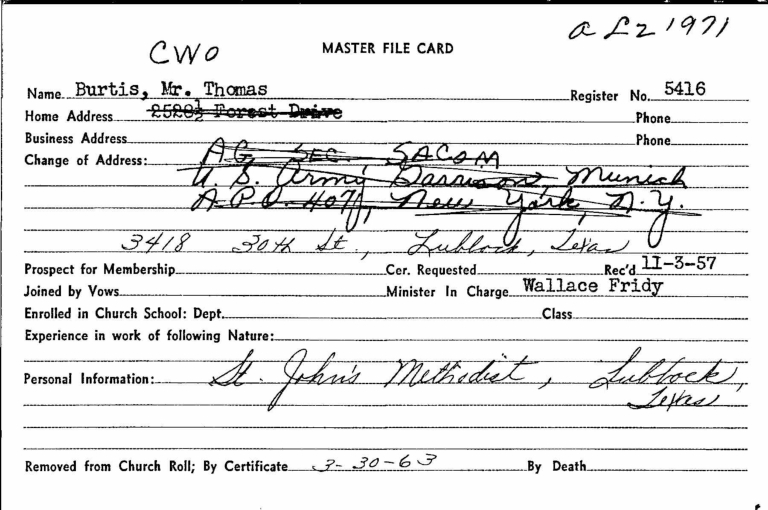 a L2 1971
CWO
MASTER FILE CARD
Name Burtis, Mr. Thomas Register No. 5416
Home Address 2520½ Forest Drive Phone
Business Address Phone
Change of Address: A.G. SEC. SACOM
U.S. Army Garrison, Munich
A.P.O. 407, New York, N.Y.
3418 30th St., Lubbock, Texas
Prospect for Membership Cer. Requested Rec'd 11-3-57
Joined by Vows Minister In Charge Wallace Fridy
Enrolled in Church School: Dept. Class
Experience in work of following Nature:
Personal Information: St. John's Methodist, Lubbock,
Texas
Removed from Church Roll; By Certificate 3-30-63 By Death